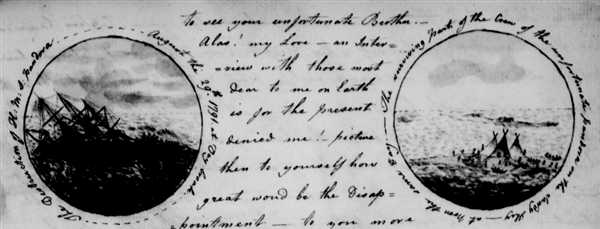 The Destruction of H. M. S. Pandora
August the 29th 1791 at Day break
to see your unfortunate Brother.—
Alas! my Love — an Inter=
=view with those most
dear to me on Earth
is for the present
denied me! picture
then to yourself how
great would be the Disap=
=pointment — to you more
The surviving part of the Crew of the unfortunate Pandora on the Sandy Key — at Noon the same Day